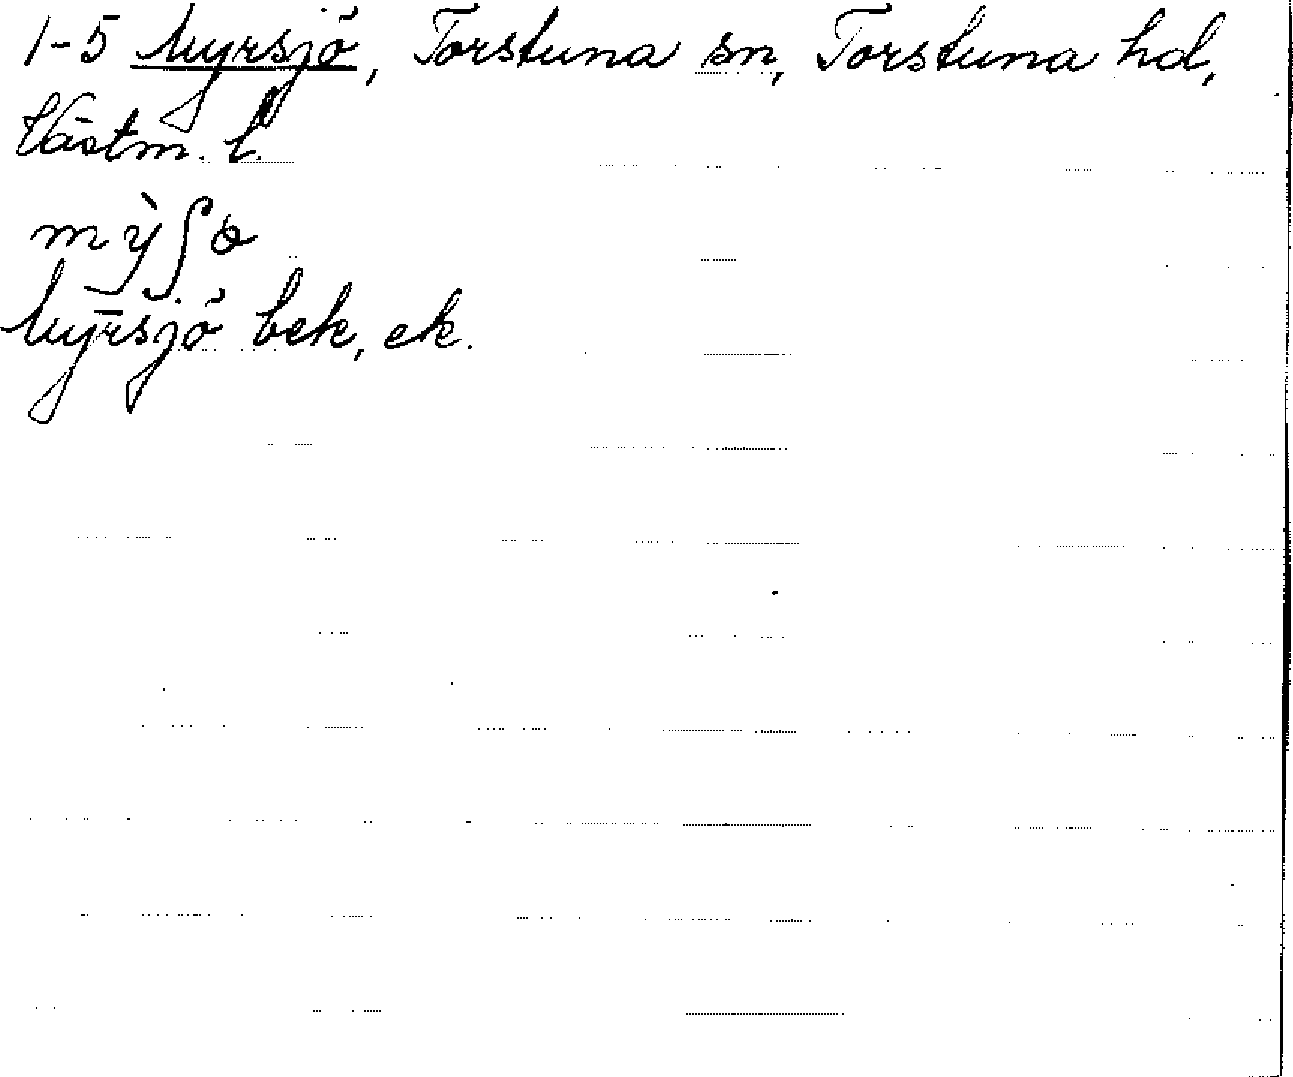 1-5 Myrsjö, Torstuna sn, Torstuna hd,
Västm. l.
Myrsjö bek, ek.